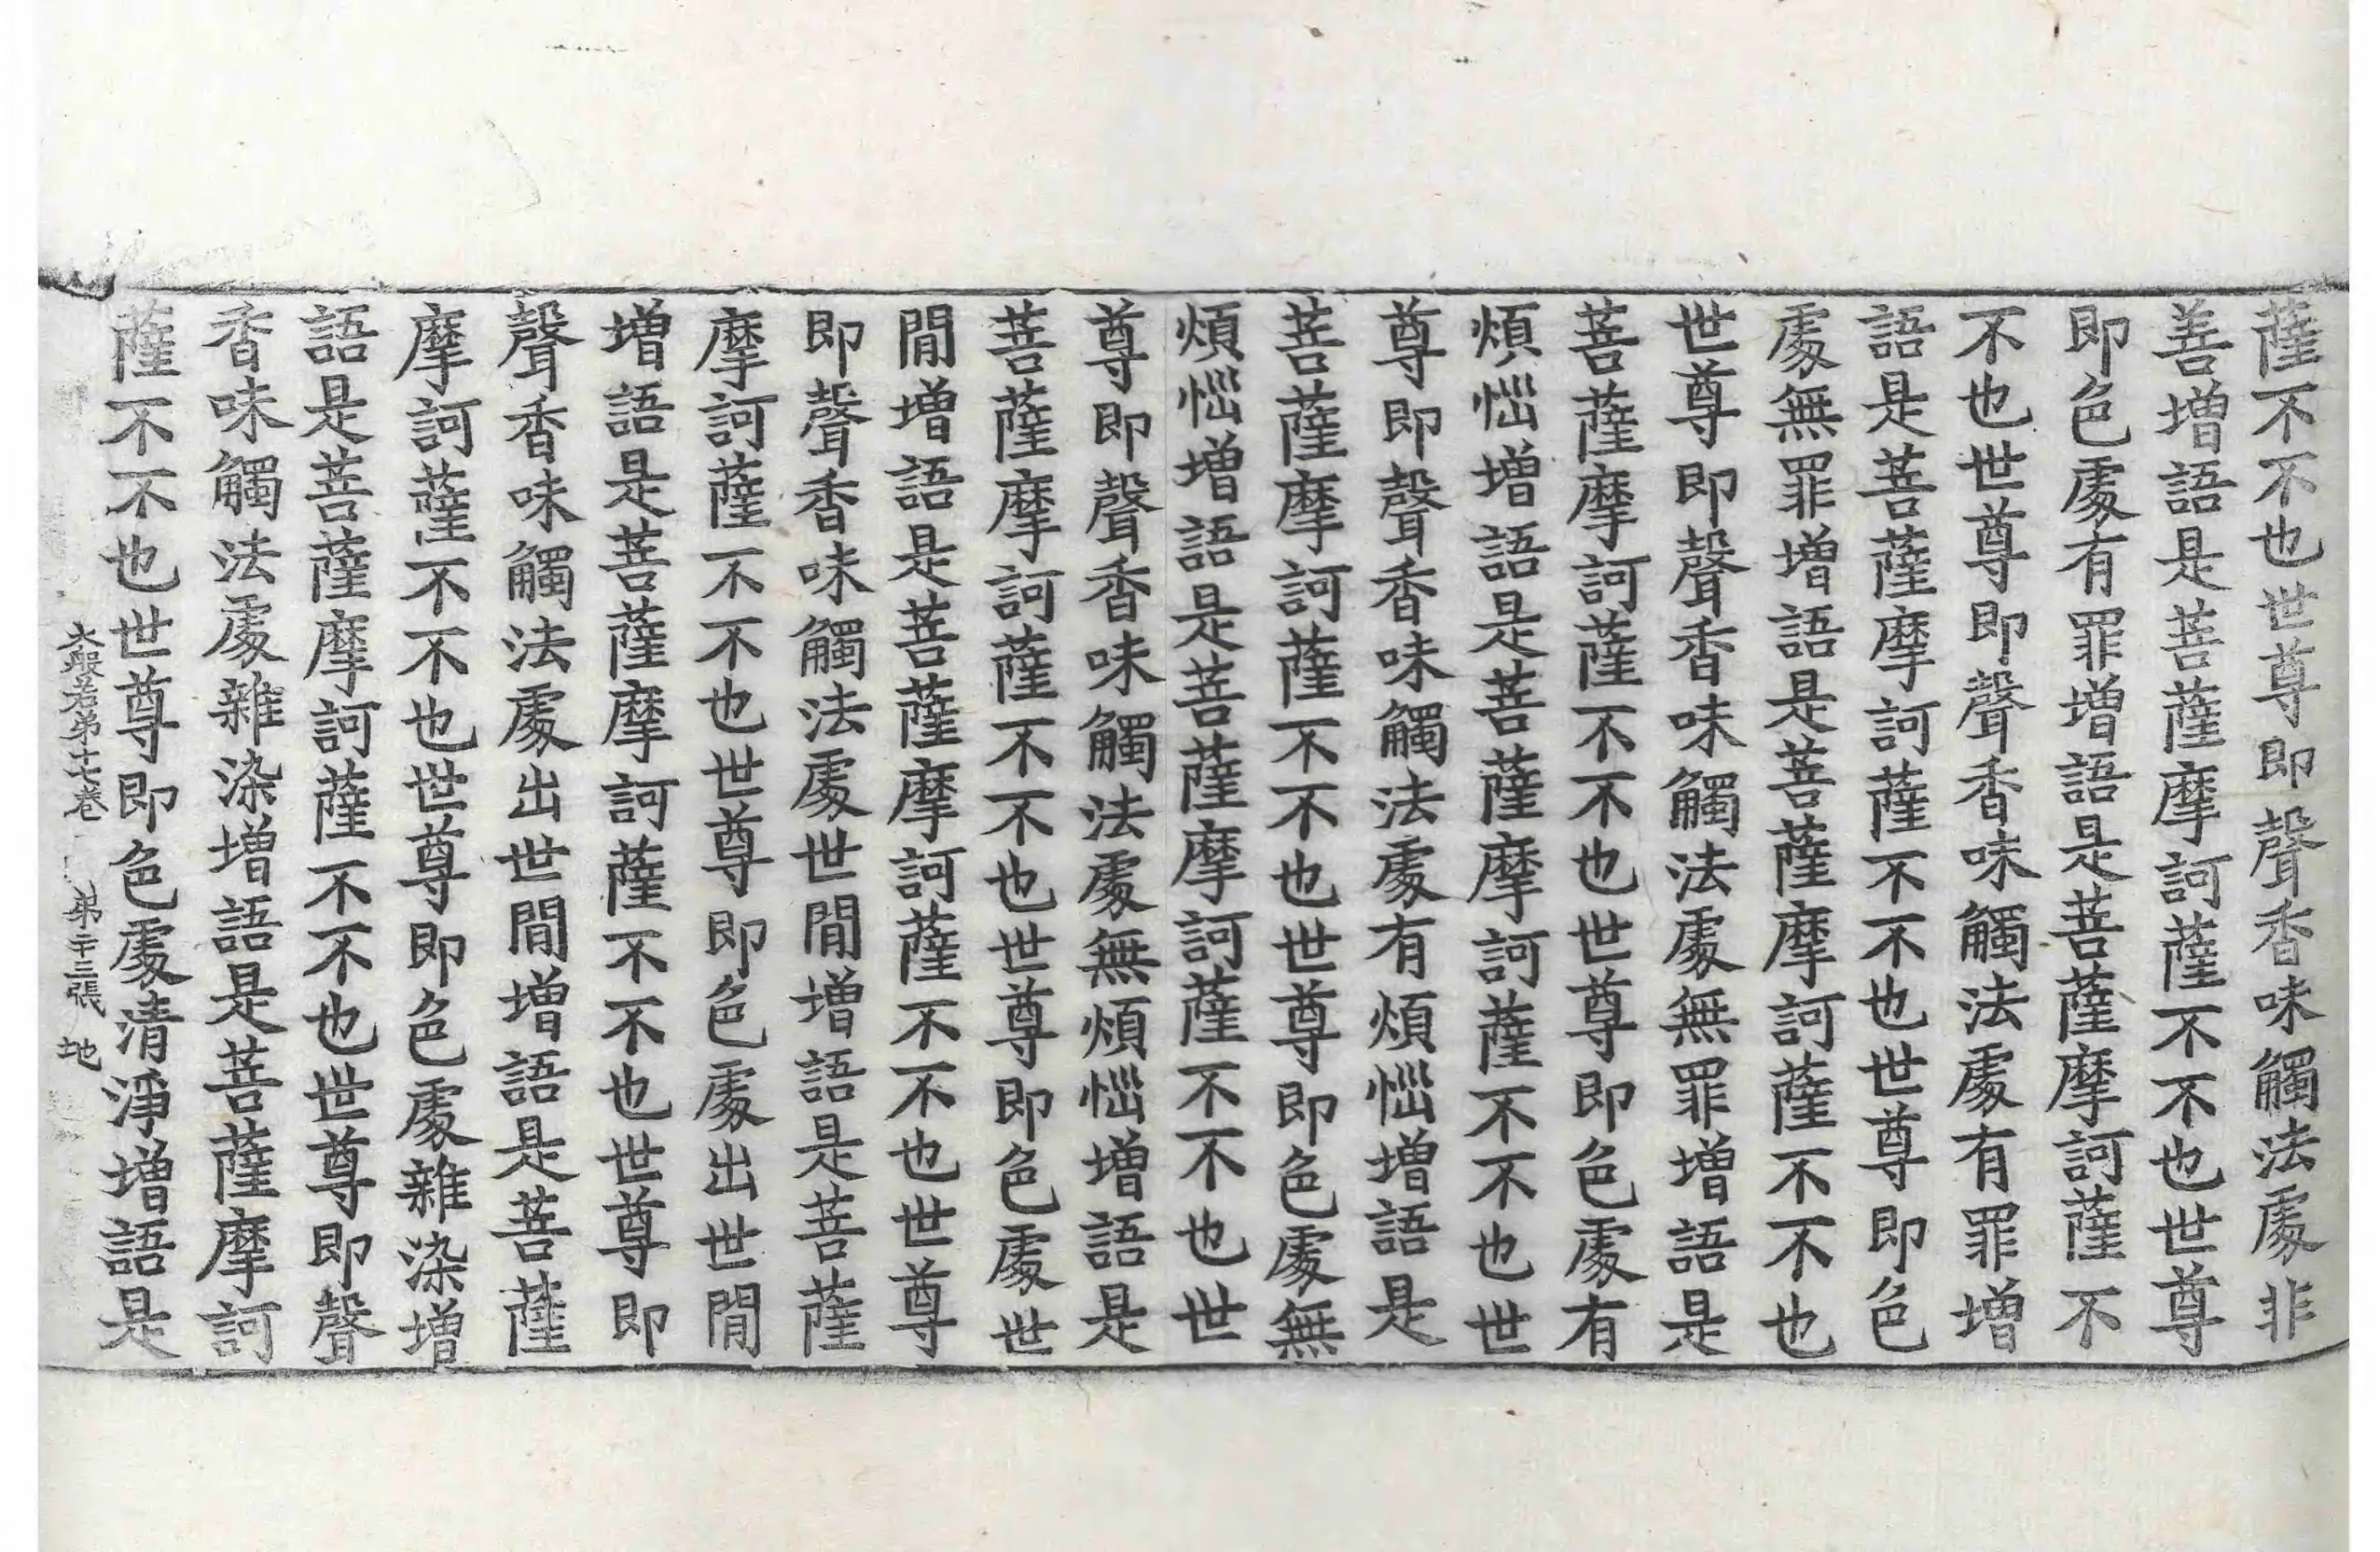 薩不不也世尊即聲香味觸法處非
善増語是菩薩摩訶薩不不也世尊
即色處有罪増語是菩薩摩訶薩不
不也世尊即聲香味觸法處有罪増
語是菩薩摩訶薩不不也世尊即色
處無罪増語是菩薩摩訶薩不不也
世尊即聲香味觸法處無罪増語是
菩薩摩訶薩不不也世尊即色處有
煩惱増語是菩薩摩訶薩不不也世
尊即聲香味觸法處有煩惱増語是
菩薩摩訶薩不不也世尊即色處無
煩惱増語是菩薩摩訶薩不不也世
尊即聲香味觸法處無煩惱増語是
菩薩摩訶薩不不也世尊即色處世
閒増語是菩薩摩訶薩不不也世尊
即聲香味觸法處世閒増語是菩薩
摩訶薩不不也世尊即色處出世閒
増語是菩薩摩訶薩不不也世尊即
聲香味觸法處出世閒増語是菩薩
摩訶薩不不也世尊即色處雜染増
語是菩薩摩訶薩不不也世尊即聲
香味觸法處雜染増語是菩薩摩訶
薩不不也世尊即色處清淨増語是
大般若第十七卷 第二十三張 地